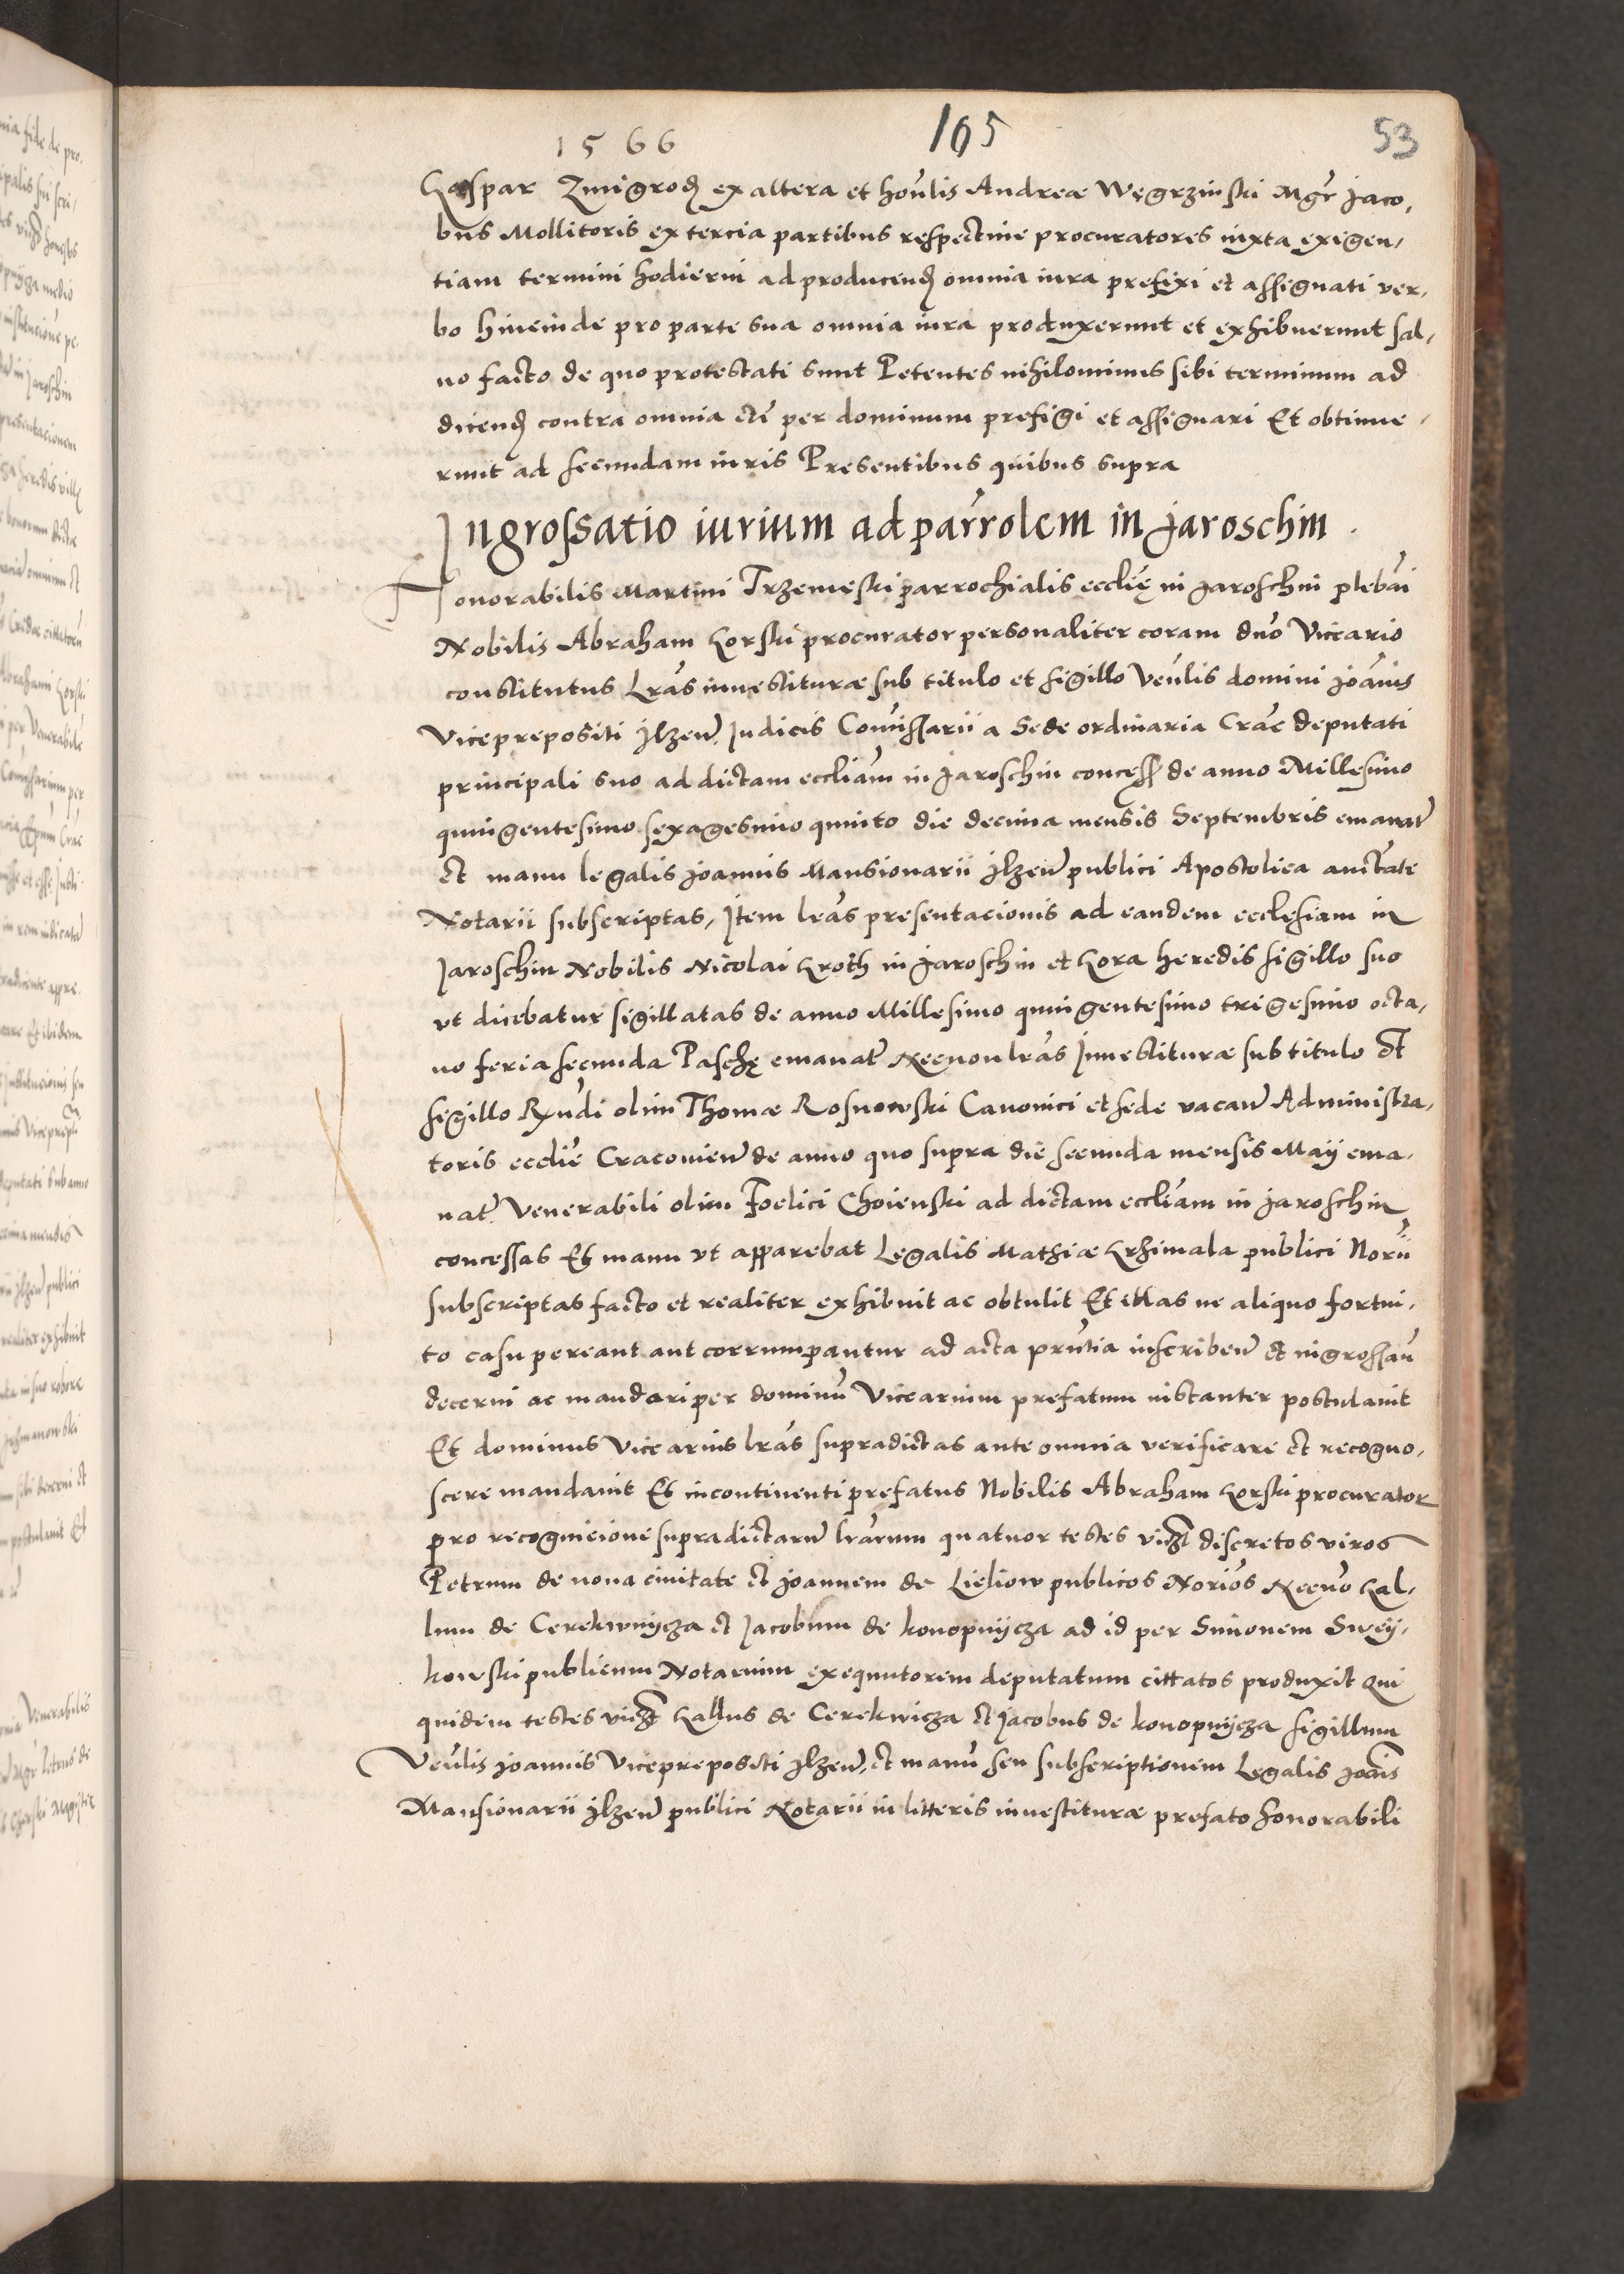 1566
165
53
Gaspar Zmigrod ex altera et hon̄lis Andreæ Węgrzinski Mgr̄ Jaco,
bus Mollitoris ex tercia partibus respectiue procuratores iuxta exigen,
tiam termini hodierni ad producend̄ omnia iura prefixi et assignati ver,
bo hincinde pro parte sua omnia iura produxerunt et exhibuerunt sal,
uo facto de quo protestati sunt Petentes nihilominus sibi terminum ad
dicend̄ contra omnia etc̄ per dominum prefigi et assignari Et obtinue,
runt ad secundam iuris Presentibus quibus supra
Ingrossatio iurium ad par̄rolem in Jaroschin.
Honorabilis Martini Trzemeski parrochialis ecclię̄ in Jaroschin plebān̄i
Nobilis Abraham Gorski procurator personaliter coram dn̄o Vicario
constitutus Lr̄as inuestituræ sub titulo et sigillo Ven̄lis domini Joān̄is
Viceprepositi Ilzen̄. Judicis Com̄issarii a Sede ordinaria Crac̄ deputati
principali suo ad dictam eccliām in Jaroschin concess̄ de anno Millesimo
quingentesimo sexagesimo quinto die decima mensis Septembris emanat̄
et manu legalis Joannis Mansionarii Ilzen̄ publici Apostolica auctt̄ate
Notarii subscriptas, Item lr̄as presentacionis ad eandem ecclesiam in
Jaroschin Nobilis Nicolai Groth in Jaroschin et Gora heredis sigillo suo
vt dicebatur sigillatas de anno Millesimo quingentesimo trigesimo octa,
uo feria secunda Paschę emanat̄ Necnon lr̄as Inuestituræ sub titulo et
sigillo Rxn̄di olim Thomæ Rosnowski Canonici et sede vacan̄ Administra,
toris ecclie̅ Cracouien̄ de anno quo supra die secunda mensis Maij ema,
nat̄. Venerabili olim Foelici Choienski ad dictam eccliām in Jaroschin
concessas Et manu vt apparebat Legalis Mathiæ Grzimala publici Nor̄ii
subscriptas facto et realiter exhibuit ac obtulit Et illas ne aliquo fortui,
to casu pereant aut corrumpantur ad acta prn̄tia inscriben̄ et ingrossan̄
decerni ac mandari per dominū Vicarium prefatum instanter postulauit
Et dominus Vicarius lr̄as supradictas ante omnia verificare et recogno,
scere mandauit Et incontinenti prefatus Nobilis Abraham Gorski procurator
pro recognicione supradictarū lr̄arum quatuor testes vidzt discretos viros
Petrum de noua ciuitate et Joannem de Lieliow publicos Nor̄ios Necnō Gal,
lum de Cerekwnijcza et Jacobum de konopnijcza ad id per Simonem Sweij,
kowski publicum Notarium exequutorem deputatum cittatos produxit Qui
quidem testes vidzt Gallus de Cerekwicza et Jacobus de konopnijcza sigillum
Ven̄lis Joannis Viceprepositi Ilzen̄, et manū seu subscriptionem Legalis Joān̄is
Mansionarii Ilzen̄ publici Notarii in litteris inuestituræ prefato honorabili